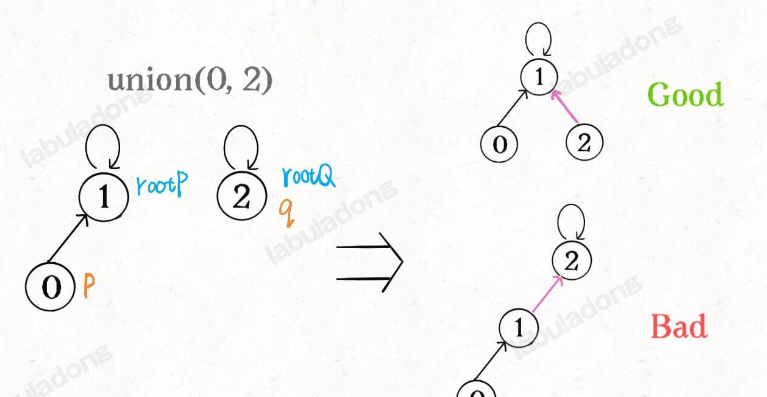 union(0, 2)
1
rootP
2
rootQ
q
0
p
1
0
2
Good
2
1
0
Bad
labuladong
labuladong
labuladong
labuladong
labuladong